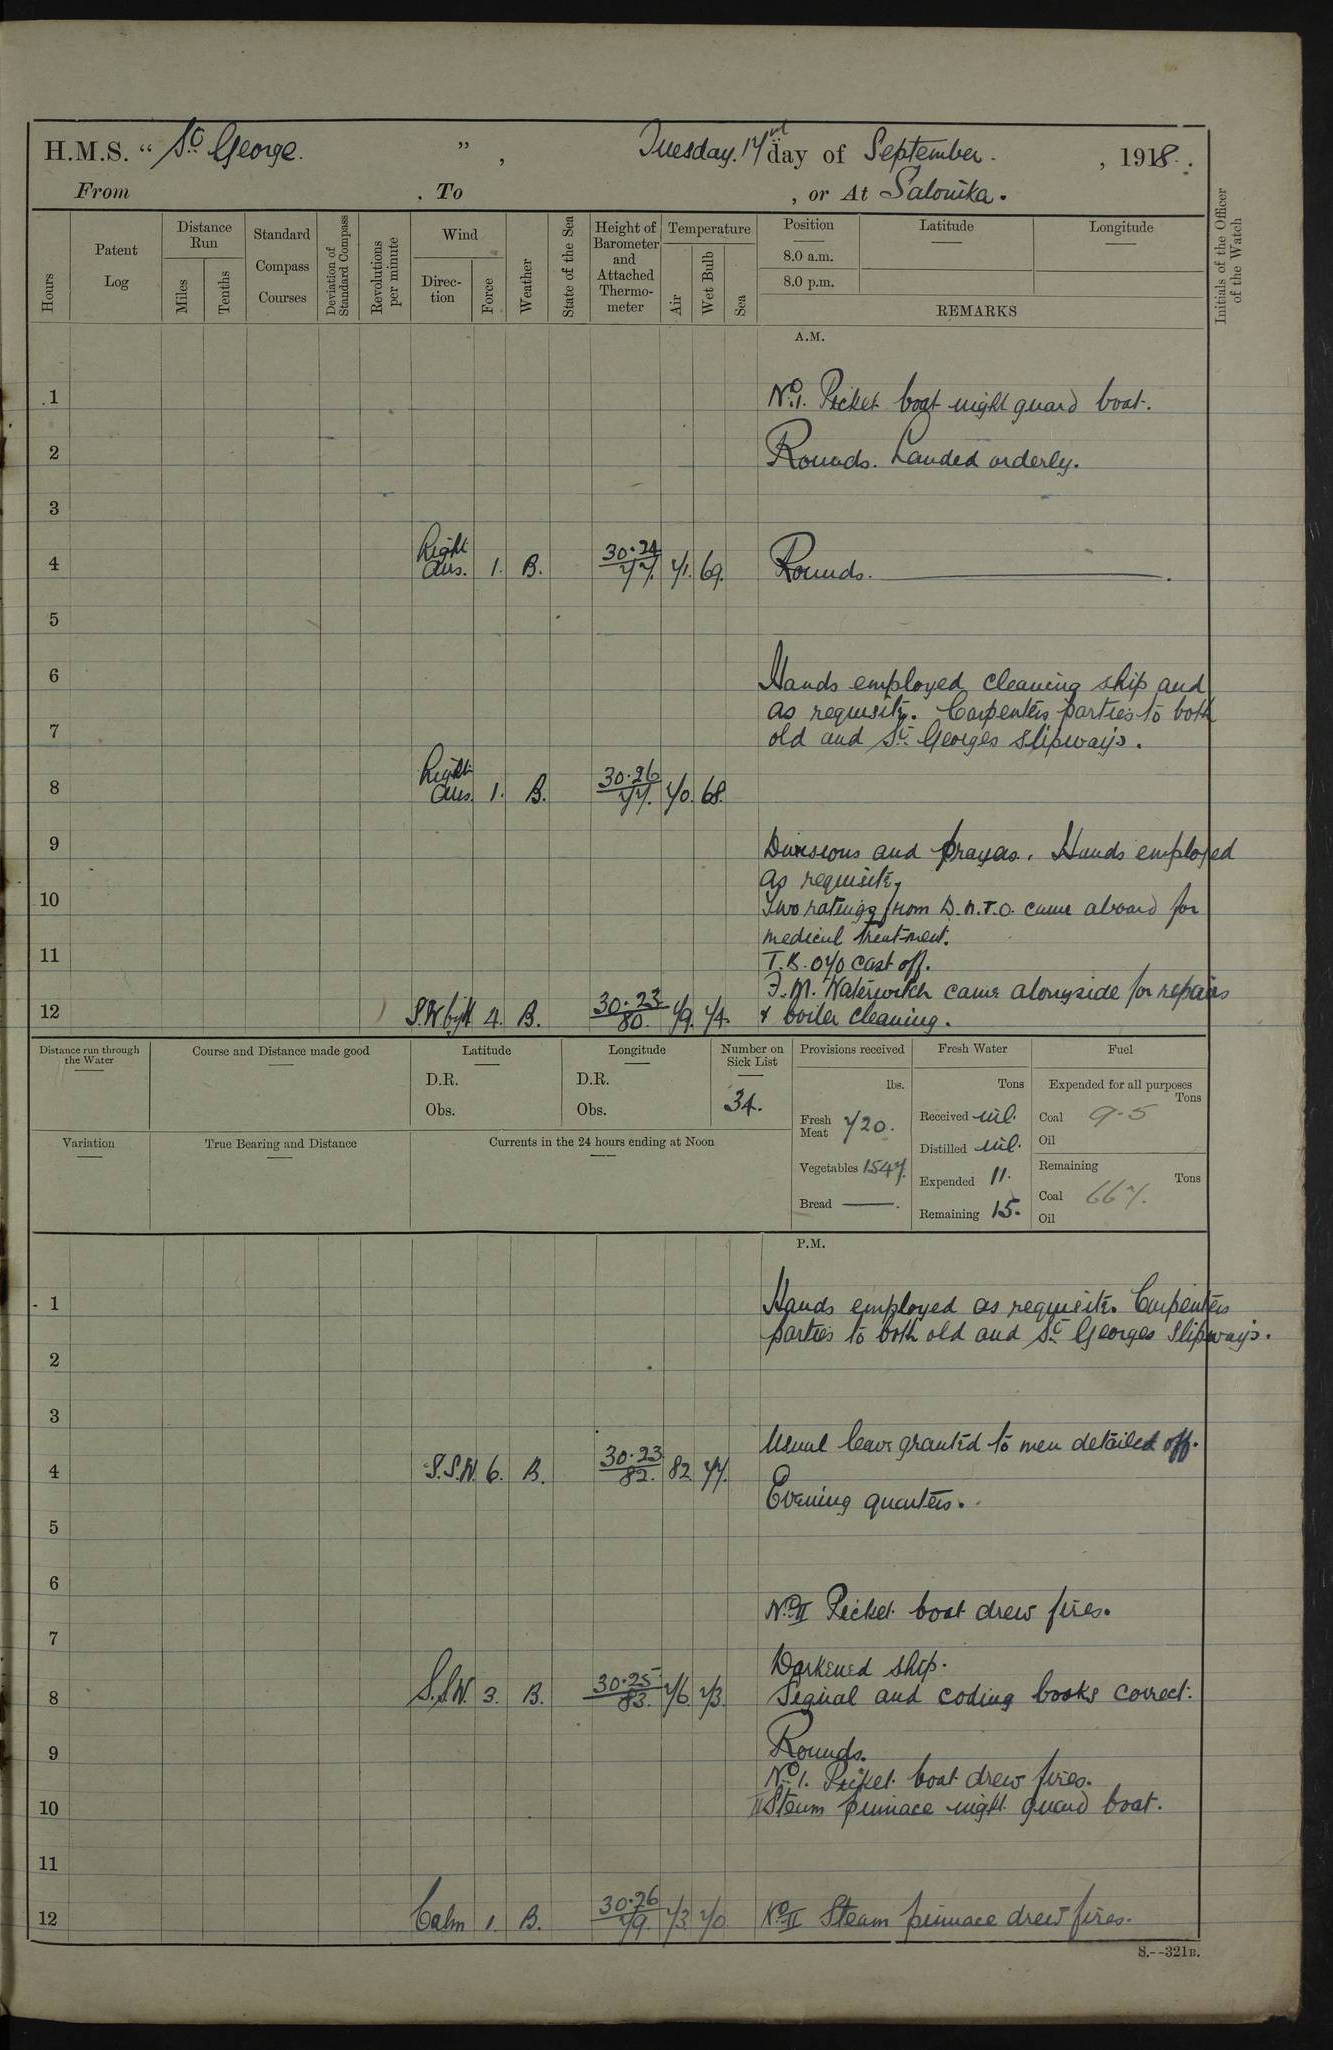 H.M.S. " St George. " , Tuesday. 17 day of September. , 1918.
From . To , or At Salonika.
Hours
Patent Log
Distance Run
Miles
Tenths
Standard Compass Courses
Deviation of Standard Compass
Revolutions per minute
Wind
Direction
Force
Weather
State of the Sea
Height of Barometer and Attached Thermometer
Temperature
Air
Wet Bulb
Sea
Position
8.0 a.m.
8.0 p.m.
Latitude
Longitude
REMARKS
Initials of the Officer of the Watch
A.M.
1 No. 1. Picket boat night guard boat.
2 Rounds. Landed orderly.
3
4 Light Airs. 1. B. 30.24 77. 71. 69. Rounds.
5
6 Hands employed cleaning ship and
as requisite. Carpenters parties to both
7 old and St Georges slipways.
8 Light Airs. 1. B. 30.26 77. 70. 68.
9 Divisions and prayers. Hands employed
as requisite,
10 Two ratings from D.N.T.O. came aboard for
medical treatment.
11 T.B. 070 cast off.
F.M. Waterwitch came alongside for repairs
12 4. B. 30.23 80. 79. 74. & boiler cleaning.
Distance run through the Water
Course and Distance made good
Latitude
D.R.
Obs.
Longitude
D.R.
Obs.
Number on Sick List
34.
Provisions received
lbs.
Fresh Meat 720.
Vegetables 1547.
Bread —.
Fresh Water
Tons
Received nil.
Distilled nil.
Expended 11.
Remaining 15.
Fuel
Expended for all purposes
Tons
Coal 9.5
Oil
Remaining
Tons
Coal 667.
Oil
Variation
True Bearing and Distance
Currents in the 24 hours ending at Noon
P.M.
1 Hands employed as requisite. Carpenters
parties to both old and St Georges Slipways.
2
3
Usual leave granted to men detailed off.
4 S.S.W. 6. B. 30.23 82. 82 77.
Evening quarters.
5
6
No II Picket boat drew fires.
7
Darkened ship.
8 S.S.W. 3. B. 30.25 83. 76. 73. Signal and coding books correct.
9 Rounds.
No 1. Picket boat drew fires.
10 II Steam pinnace night guard boat.
11
12 Calm 1. B. 30.26 79. 73 70 No II Steam pinnace drew fires.
S.--321B.